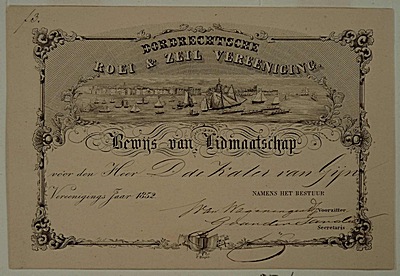 f3.
DORDRECHTSCHE
ROEI & ZEIL VEREENIGING
Bewijs van Lidmaatschap
voor den Heer D de Kater van Gijn
Vereenigings Jaar 1852.
NAMENS HET BESTUUR
Van Wageningen
Voorzitter
Secretaris